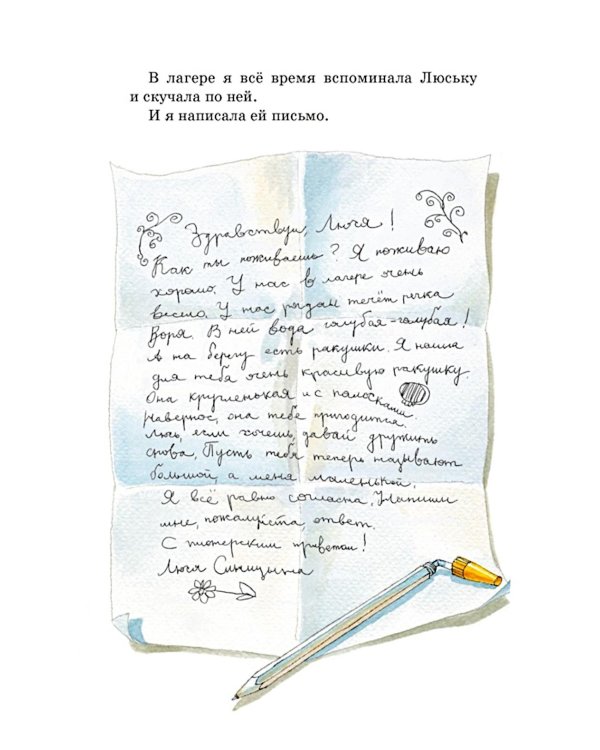 В лагере я всё время вспоминала Люську
и скучала по ней.
И я написала ей письмо.
Здравствуй, Люся!
Как ты поживаешь? Я поживаю
хорошо. У нас в лагере очень
весело. У нас рядом течёт речка
Воря. В ней вода голубая-голубая!
А на берегу есть ракушки. Я нашла
для тебя очень красивую ракушку.
Она кругленькая и с полосками.
Наверное, она тебе пригодится.
Люсь, если хочешь, давай дружить
снова. Пусть тебя теперь называют
большой, а меня маленькой.
Я всё равно согласна. Напиши
мне, пожалуйста, ответ.
С пионерским приветом!
Люся Синицына